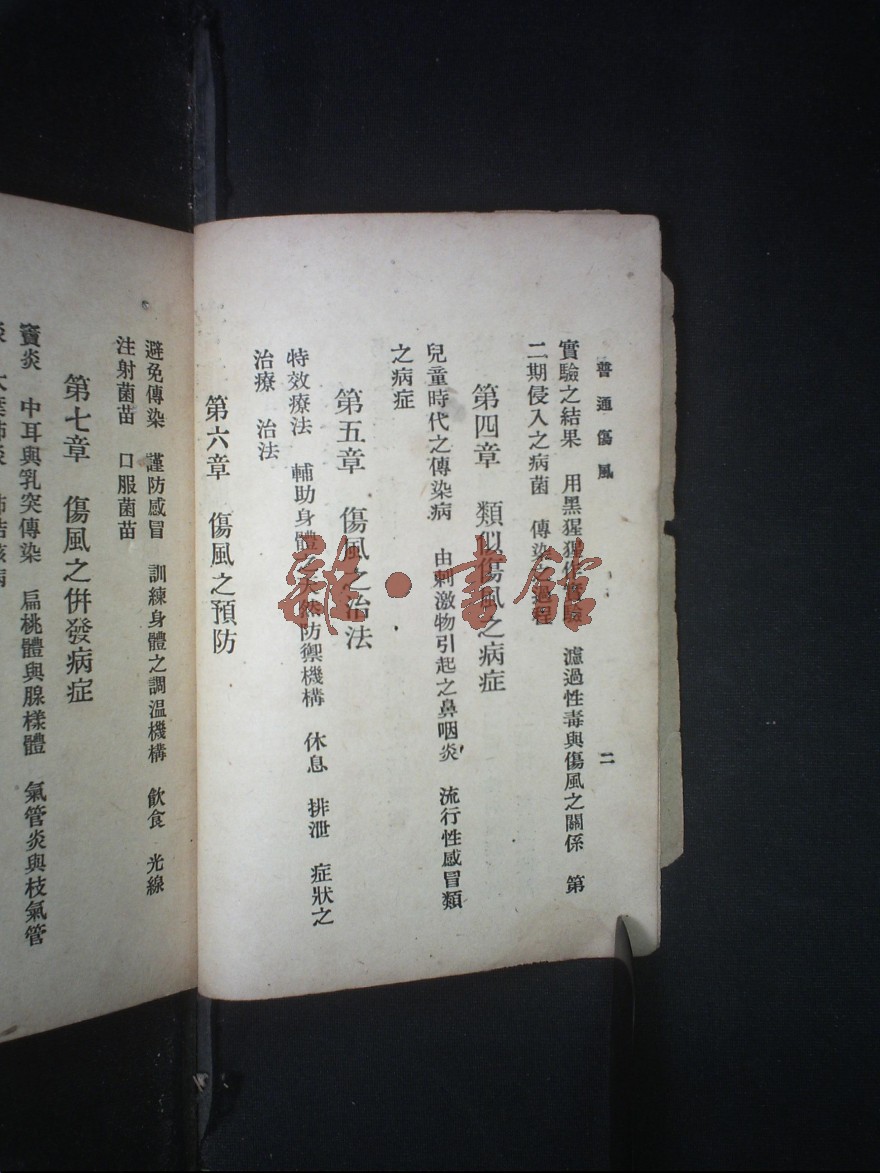 普通傷風
二
實驗之結果　用黑猩猩作實驗　濾過性毒與傷風之關係　第
二期侵入之病菌　傳染之過程
第四章　類似傷風之病症
兒童時代之傳染病　由刺激物引起之鼻咽炎　流行性感冒類
之病症
第五章　傷風之治法
特效療法　輔助身體之天然防禦機構　休息　排泄　症狀之
治療　治法
第六章　傷風之預防
避免傳染　謹防感冒　訓練身體之調溫機構　飲食　光線
注射菌苗　口服菌苗
第七章　傷風之併發病症
竇炎　中耳與乳突傳染　扁桃體與腺樣體　氣管炎與枝氣管
雜·書館